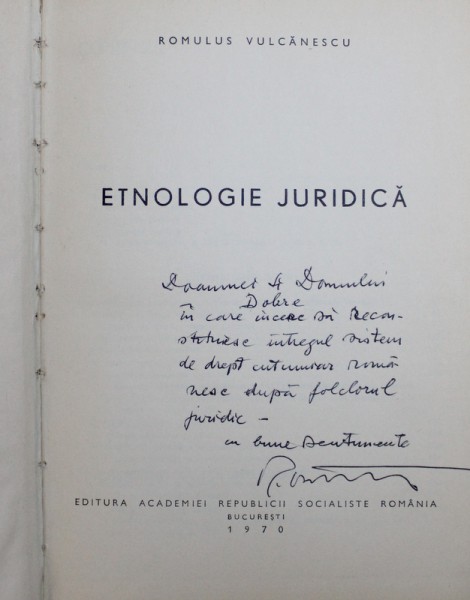 ROMULUS VULCĂNESCU
ETNOLOGIE JURIDICĂ
Doamnei și Domnului
Dobre
în care încerc să Recon-
stituiesc întregul sistem
de drept cutumiar româ
nesc după folclorul
juridic –
cu bune sentimente
EDITURA ACADEMIEI REPUBLICII SOCIALISTE ROMÂNIA
BUCUREȘTI
1970